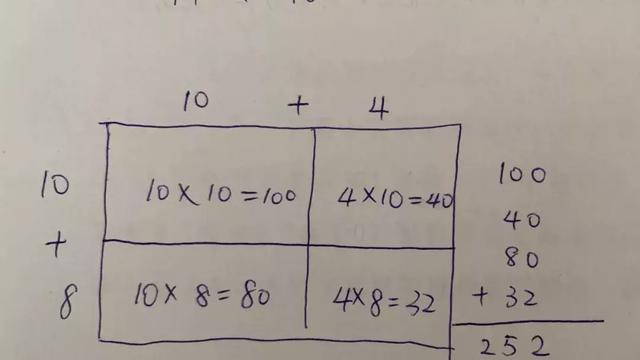 10 + 4
10
10 × 10 = 100
4 × 10 = 40
+
8
10 × 8 = 80
4 × 8 = 32
100
40
80
+ 32
252